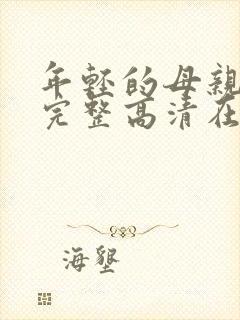 年轻的母亲
完整高清在
海壑